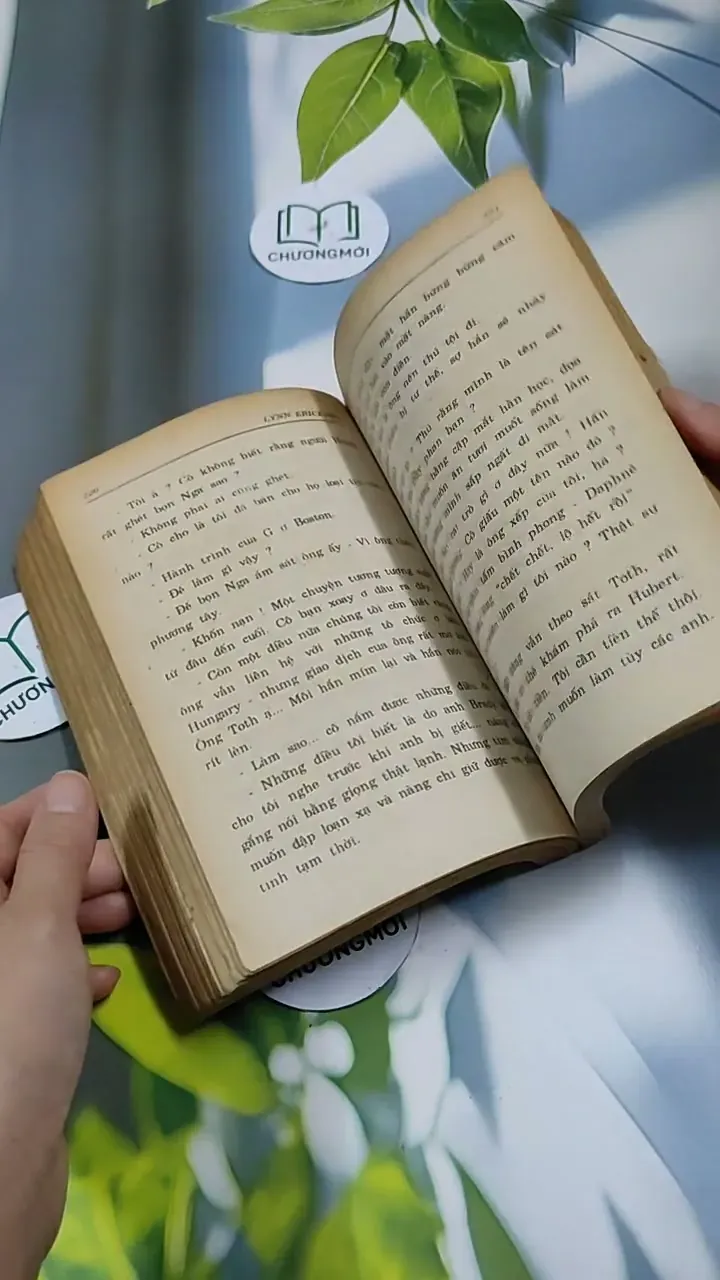 CHƯƠNGMỚI
LYNN ERICK
- Tôi à ? Cô không biết rằng người
rất ghét bọn Nga sao ?
- Không phải ai cũng ghét.
- Cô cho là tôi đã bán cho họ loại
nào ?
- Hành trình của G ở Boston.
- Để làm gì vậy ?
- Để bọn Nga ám sát ông ấy - Vị ông
phương tây.
- Khốn nạn ! Một chuyện tương tượng
từ đầu đến cuối. Cô bạn xoay ở đâu ra đây
- Còn một điều nữa chúng tôi còn biết
ông vẫn liên hệ với những tổ chức ở
Hungary - nhưng giao dịch của ông rất
Ông Toth ạ... Môi hắn mím lại và hắn
rít lên.
- Làm sao... cô nắm được những điều
- Những điều tôi biết là do anh Brady
cho tôi nghe trước khi anh bị giết... nàng
gắng nói bằng giọng thật lạnh. Nhưng tim
muốn đập loạn xạ và nàng chỉ giữ được vẻ
tĩnh tạm thời.
mặt hắn bừng bừng căm
vào mặt nàng.
ông nên thú tội đi.
bị tư thế, sợ hắn sẽ nhảy
- Thú rằng mình là tên sát
phản bạn ?
bằng cặp mắt hằn học, dọa
muốn ăn tươi nuốt sống làm
mình sắp ngất đi mất.
trò gì ở đây nữa ! Hắn
Cô giấu một tên nào đó ?
Hay là ông xếp của tôi, há ?
tấm bình phong - Daphné
"chết chốt, lộ hết rồi"
làm gì tôi nào ? Thật sự
vẫn theo sát Toth, rất
thể khám phá ra Hubert.
Tôi cần tiền thế thôi.
anh muốn làm tùy các anh.
CHƯƠNG
CHƯƠNGMỚI